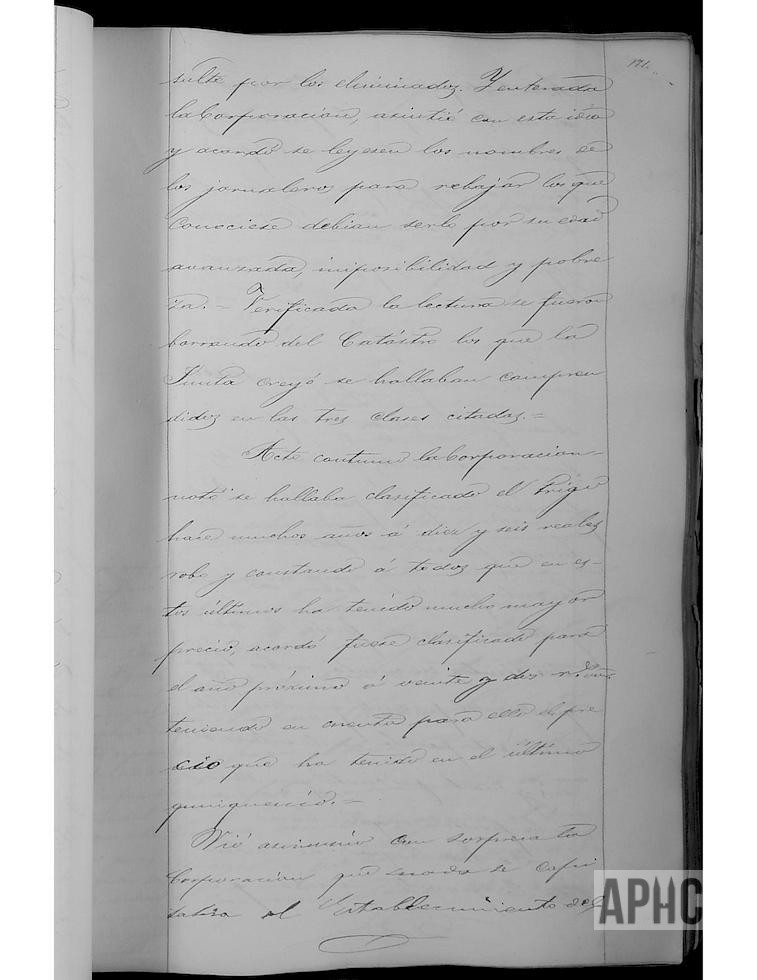 171.
sulte por los eliminados. Y enterada
la Corporacion, asintió con esta idea
y acordó se leyesen los nombres de
los jornaleros para rebajar los que
conociese debian serlo por su edad
avanzada, imposibilidad y pobre
za. = Verificada la lectura se fueron
borrando del Catastro los que la
Junta creyó se hallaban compren
didos en las tres clases citadas. =
Acto contínuo la Corporacion
notó se hallaba clasificado el trigo
hace muchos años á diez y seis reales
robo y constando á todos que en es-
tos últimos ha tenido mucho mayor
precio, acordó fuese clasificado para
el año próximo á veinte y dos
teniendo en cuenta para ello el pre
cio que ha tenido en el último
quinquenio. =
Vió asimismo con sorpresa la
Corporacion que nada se
el Establecimiento del
APHC